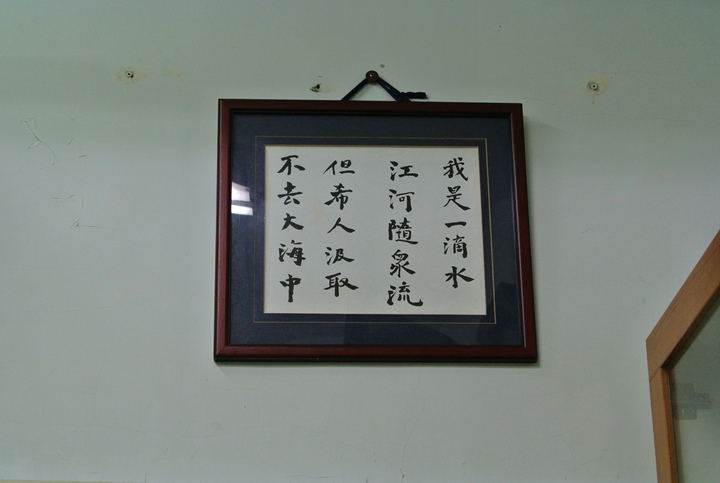 我是一滴水
江河隨眾流
但希人汲取
不去大海中